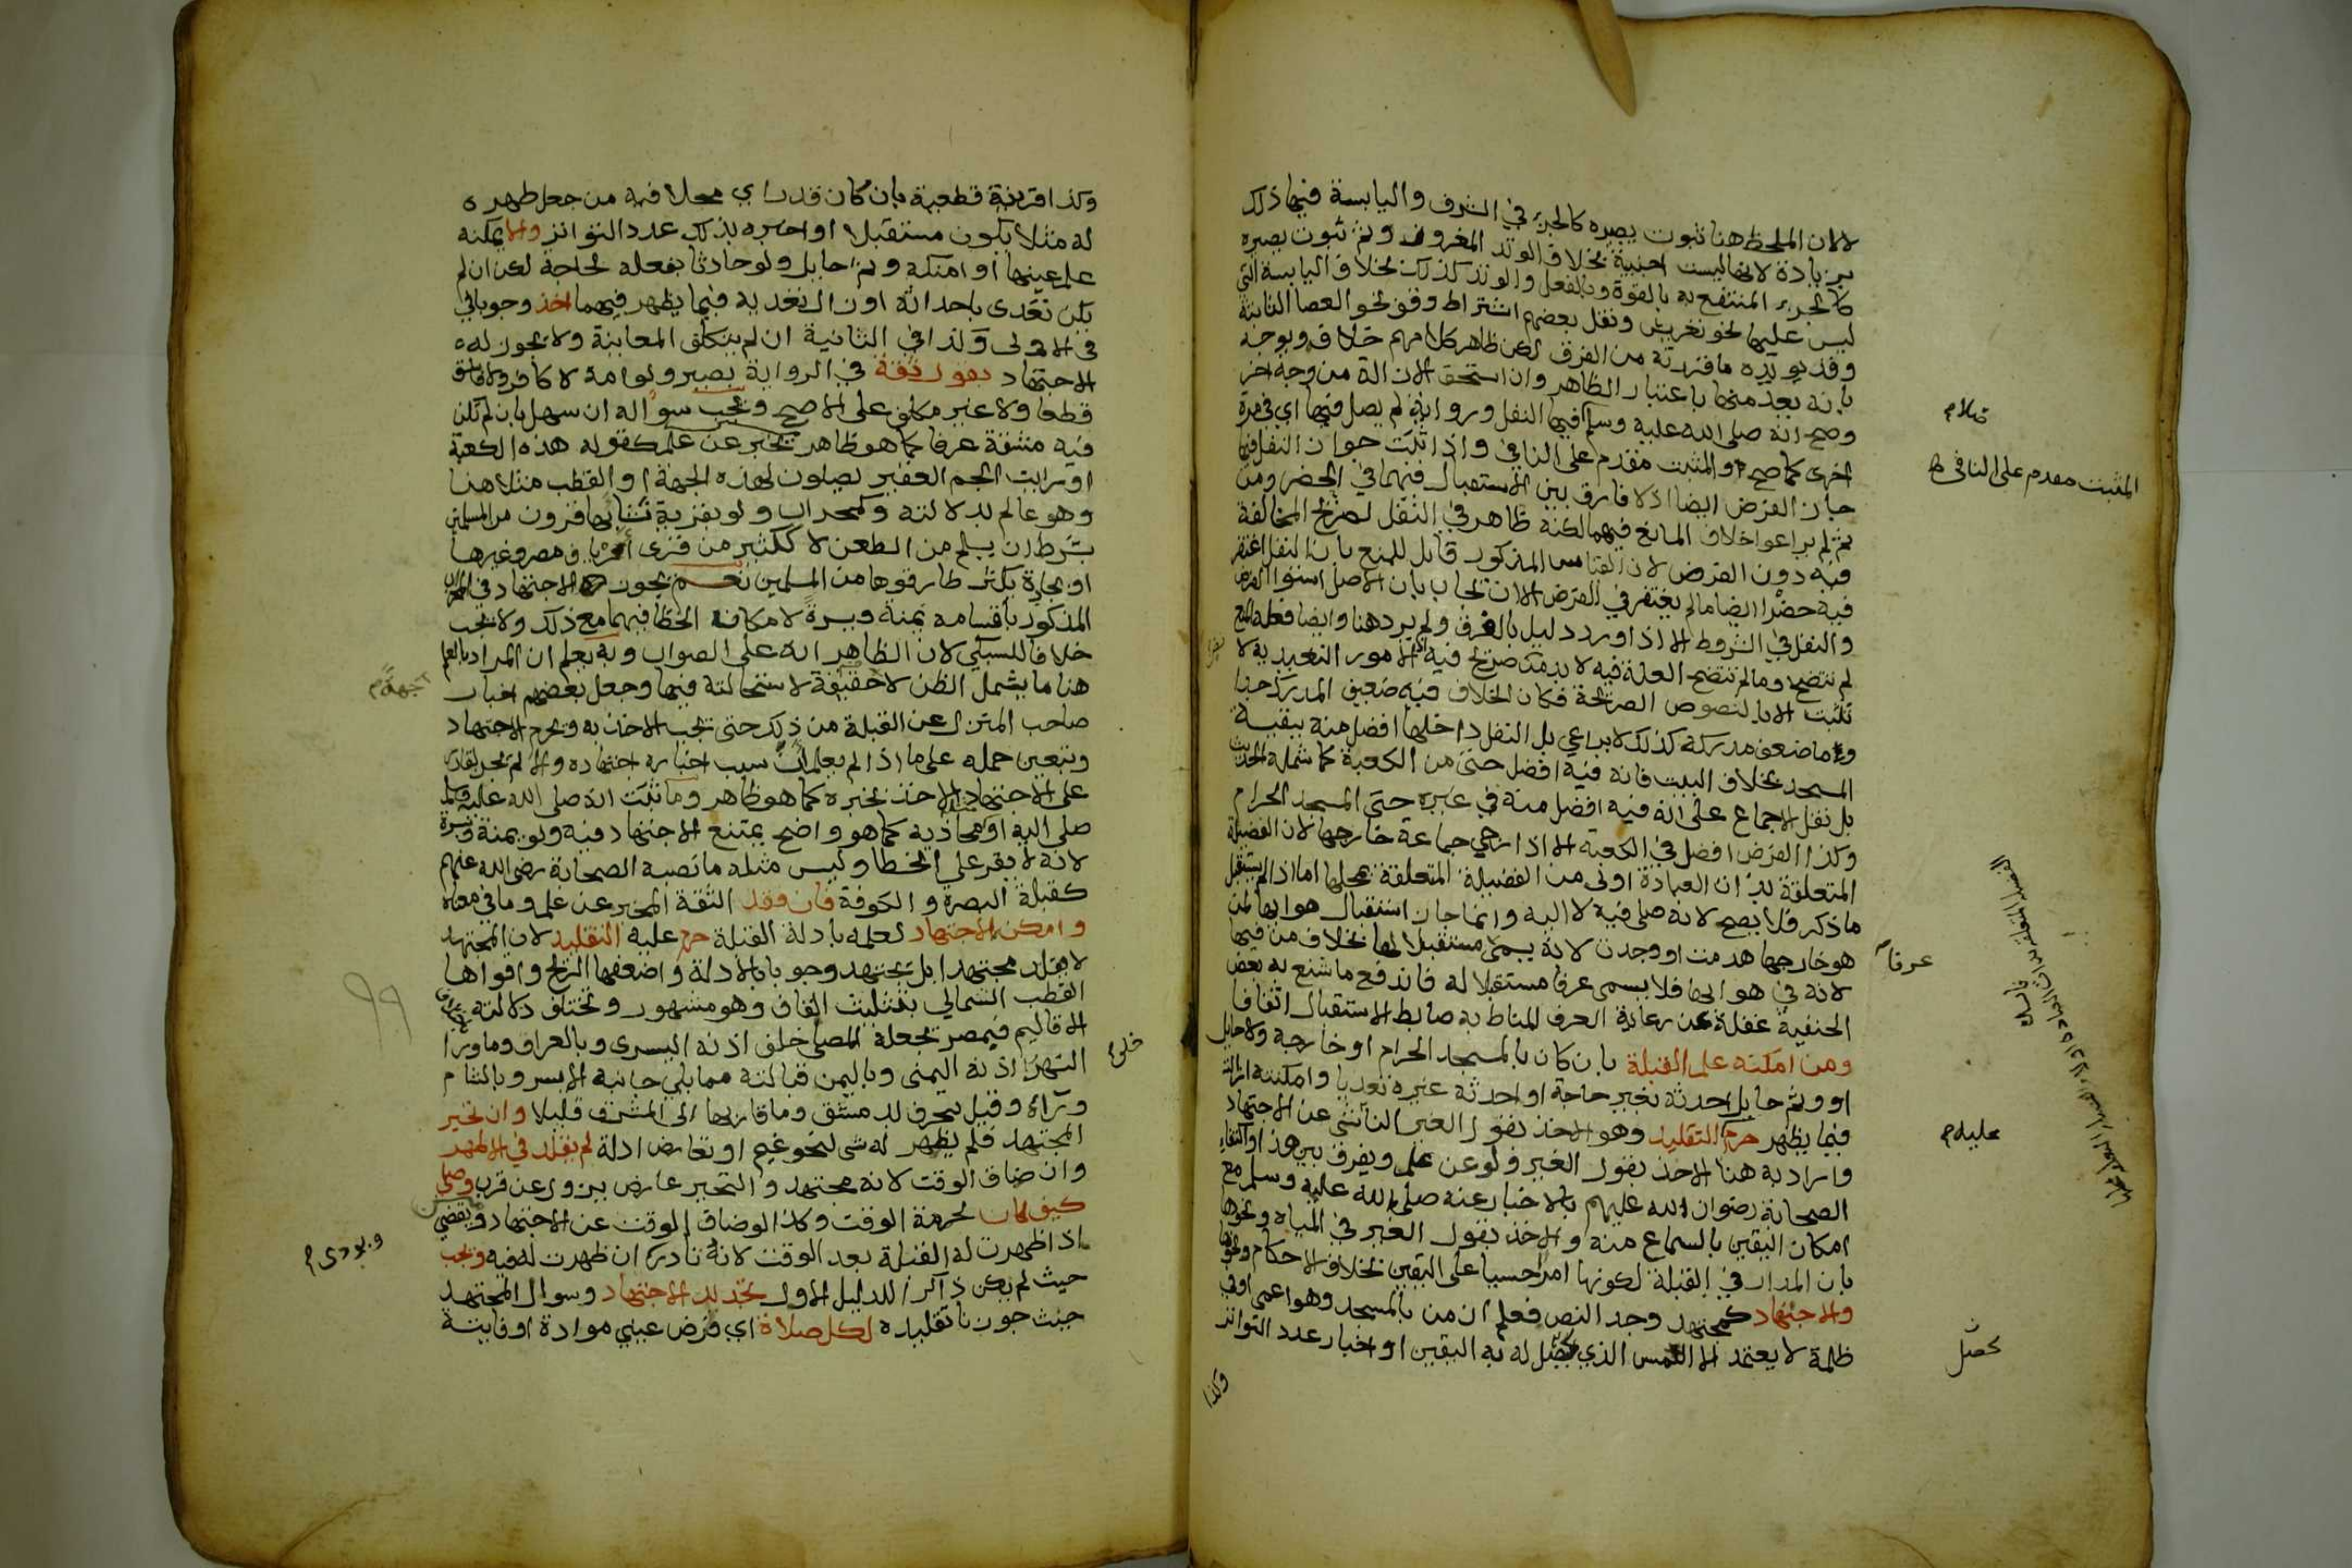 لالان الملحظ هنا ثبوت بصيره كالجزء في الشرف واليابسة فيها ذلك
بزيادة لانها ليست اجنبية بخلاف الوتد المغروف ولم تثبوت بصيره
كالجزء المنتفع به بالقوة وبالفعل والوتد كذلك بخلاف اليابسة التي
ليس عليها نحو تعريش ونقل بعضهم اشتراط وقف نحو العصا الثابتة
وقد يويده ما قررته من الفرق لكن ظاهر كلامهم خلافه ويوجه
بانه يعد منها باعتبار الظاهر وان استحق الازالة من وجه اخر
وصح انه صلى الله عليه وسلم صلى فيها النفل ورواية لم يصل فيها اي في مرة
اخرى كما صح والمثبت مقدم على النافي واذا ثبت جواز النفل فيها
جاز الفرض ايضا اذ لا فارق بين الاستقبال فيهما في الحضر ومن
ثم لم يراعوا خلاف المانع فيهما لكنه ظاهر في النفل لصريح المخالفة
فيه دون الفرض لان القياس المذكور قابل للمنع بان النفل اغتفر
فيه حضرا ايضا ما لم يغتفر في الفرض الا ان يجاب بان الاصل استوا الفرض
والنفل في الشروط الا اذا ورد دليل بالفرق ولم يرد هنا وايضا فعلة المنع
لم تتضح وما لم تتضح العلة فيه لا بد من صريح فيه اذ الامور التعبدية لا
تثبت الا بالنصوص الصريحة فكان الخلاف فيه ضعيف المدرك جدا
وما ضعف مدركه كذلك لا يراعى بل النفل داخلها افضل منه ببقية
المسجد بخلاف البيت فانه فيه افضل حتى من الكعبة كما شمله الحديث
بل نقل الاجماع على انه فيه افضل منه في غيره حتى المسجد الحرام
وكذا الفرض افضل في الكعبة الا اذا رجي جماعة خارجها لان الفضيلة
المتعلقة بذات العبادة اولى من الفضيلة المتعلقة بمحلها اما اذا لم يستقبل
ما ذكر فلا يصح لانه صلى فيه لا اليه وانما جاز استقبال هوايها لمن
هو خارجها هدمت او وجدت لانه يسمى مستقبلا لها بخلاف من فيها
لانه في هوايها فلا يسمى عرفا مستقبلا له فاندفع ما شنع به بعض
الحنفية غفلة عن رعاية العرف المناط به ضابط الاستقبال اتفاقا
ومن امكنه علم القبلة بان كان بالمسجد الحرام او خارجه ولا حايل
او وثم حايل احدثه لغير حاجة او احدثه غيره تعديا وامكنته ازالته
فيما يظهر حرم التقليد وهو الاخذ بقول الغير الناشي عن الاجتهاد
واراد به هنا الاخذ بقول الغير ولو عن علم ويفرق بين هذا واكتفاء
الصحابة رضوان الله عليهم بالاخبار عنه صلى الله عليه وسلم مع
امكان اليقين بالسماع منه والاخذ بقول الغير في المياه ونحوها
بان المدار في القبلة لكونها امرا حسيا على اليقين بخلاف الاحكام ونحوها
والاجتهاد كمجتهد وجد النص فعلم ان من بالمسجد وهو اعمى او في
ظلمة لا يعتمد الا اللمس الذي يحصل له به اليقين او اخبار عدد التواتر
وكذا
خلام
المثبت مقدم على النافي
عرفا
عليه م
تحصل
وكذا قرينة قطعية بان كان قد راي محلا فيه من جعل ظهره
له مثلا يكون مستقبلا او اخبره بذلك عدد التواتر والا يمكنه
علم عينها او امكنه وثم حايل ولو حادثا بفعله لحاجة لكن ان لم
يكن تعدى باحداثه او زال تعديه فيما يظهر فيهما اخذ وجوبا في
في الاولى وكذا في الثانية ان لم يتكلف المعاينة ولا يجوز له
الاجتهاد بقول ثقة في الرواية بصير ولو امة لا كافر ولا فاسق
قطعا ولا غير مكلف على الاصح ويجب سواله ان سهل بان لم تكن
فيه مشقة عرفا كما هو ظاهر يخبر عن علم كقوله هذه الكعبة
او رايت الجم الغفير يصلون لهذه الجهة او القطب مثلا هنا
وهو عالم بدلالته وكمحراب ولو بقرية نشا بها قرون من المسلمين
بشرط ان يسلم من الطعن لا ككثير من قرى ارياف مصر وغيرها
او بجادة يكثر طارقوها من المسلمين نعم يجوز الاجتهاد في المحراب
المذكور باقسامه يمنة ويسرة لامكان الخطا فيهما مع ذلك ولا يجب
خلافا للسبكي لان الظاهر انه على الصواب وبه يعلم ان المراد بالعلم
هنا ما يشمل الظن لا حقيقة لاستحالته فيها وجعل بعضهم اخبار
صاحب المنزل عن القبلة من ذلك حتى يجب الاخذ به ويحرم الاجتهاد
ويتعين حمله على ما اذا لم يعلم ان سبب اخباره اجتهاده والا لم يجز لقادر
على الاجتهاد الاخذ بخبره كما هو ظاهر وما ثبت انه صلى الله عليه وسلم
صلى اليه او محاذيه كما هو واضح يمتنع الاجتهاد فيه ولو يمنة ويسرة
لانه لا يقر على الخطا وليس مثله ما نصبه الصحابة رضي الله عنهم
كقبلة البصرة والكوفة فان فقد الثقة المخبر عن علم وما في معناه
وامكن الاجتهاد لعلمه بادلة القبلة حرم عليه التقليد لان المجتهد
لا يقلد مجتهدا بل يجتهد وجوبا بالادلة واضعفها الريح واقواها
القطب الشمالي بتثليث القاف وهو مشهور وتختلف دلالته باختلاف
الاقاليم فبمصر يجعله المصلي خلف اذنه اليسرى وبالعراق وما ورا
النهر اذنه اليمنى وباليمن قبالته مما يلي جانبه الايسر وبالشام
وراه وقيل ينحرف بدمشق وما قاربها الى المشرق قليلا وان تحير
المجتهد فلم يظهر له شي لنحو غيم او تعارض ادلة لم يقلد في الاظهر
وان ضاق الوقت لانه مجتهد والتحير عارض يزول عن قرب وصلى
كيف كان لحرمة الوقت وكذا لو ضاق الوقت عن الاجتهاد ويقضي
اذا ظهرت له القبلة بعد الوقت لانه نادر ان ظهرت له فيه ويجب
حيث لم يكن ذاكرا للدليل الاول تجديد الاجتهاد وسوال المجتهد
حيث جوزنا تقليده لكل صلاة اي فرض عيني موداة او فايتة
اجهة م
ويودى م